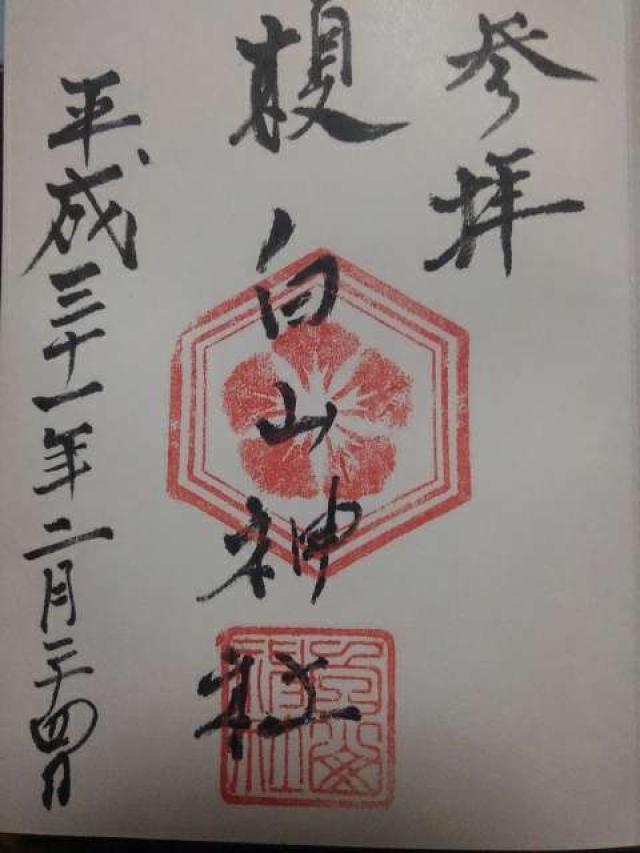 参拝
榎白山神社
平成三十一年二月二十四日